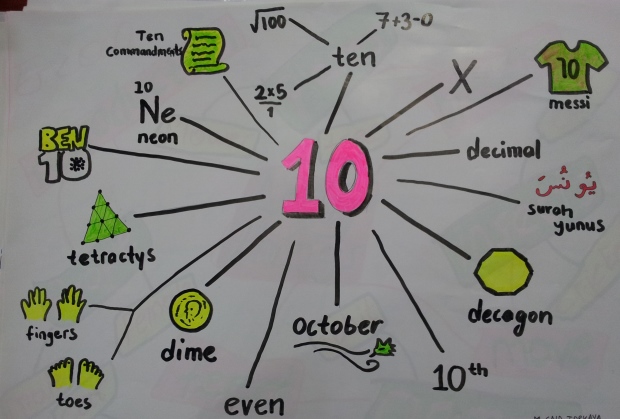 √100
7+3-0
ten
2×5
1
Ten
Commandments
10
Ne
neon
BEN
10
X
10
messi
decimal
10
يُونُس
surah
yunus
tetractys
decagon
fingers
toes
dime
even
October
10th